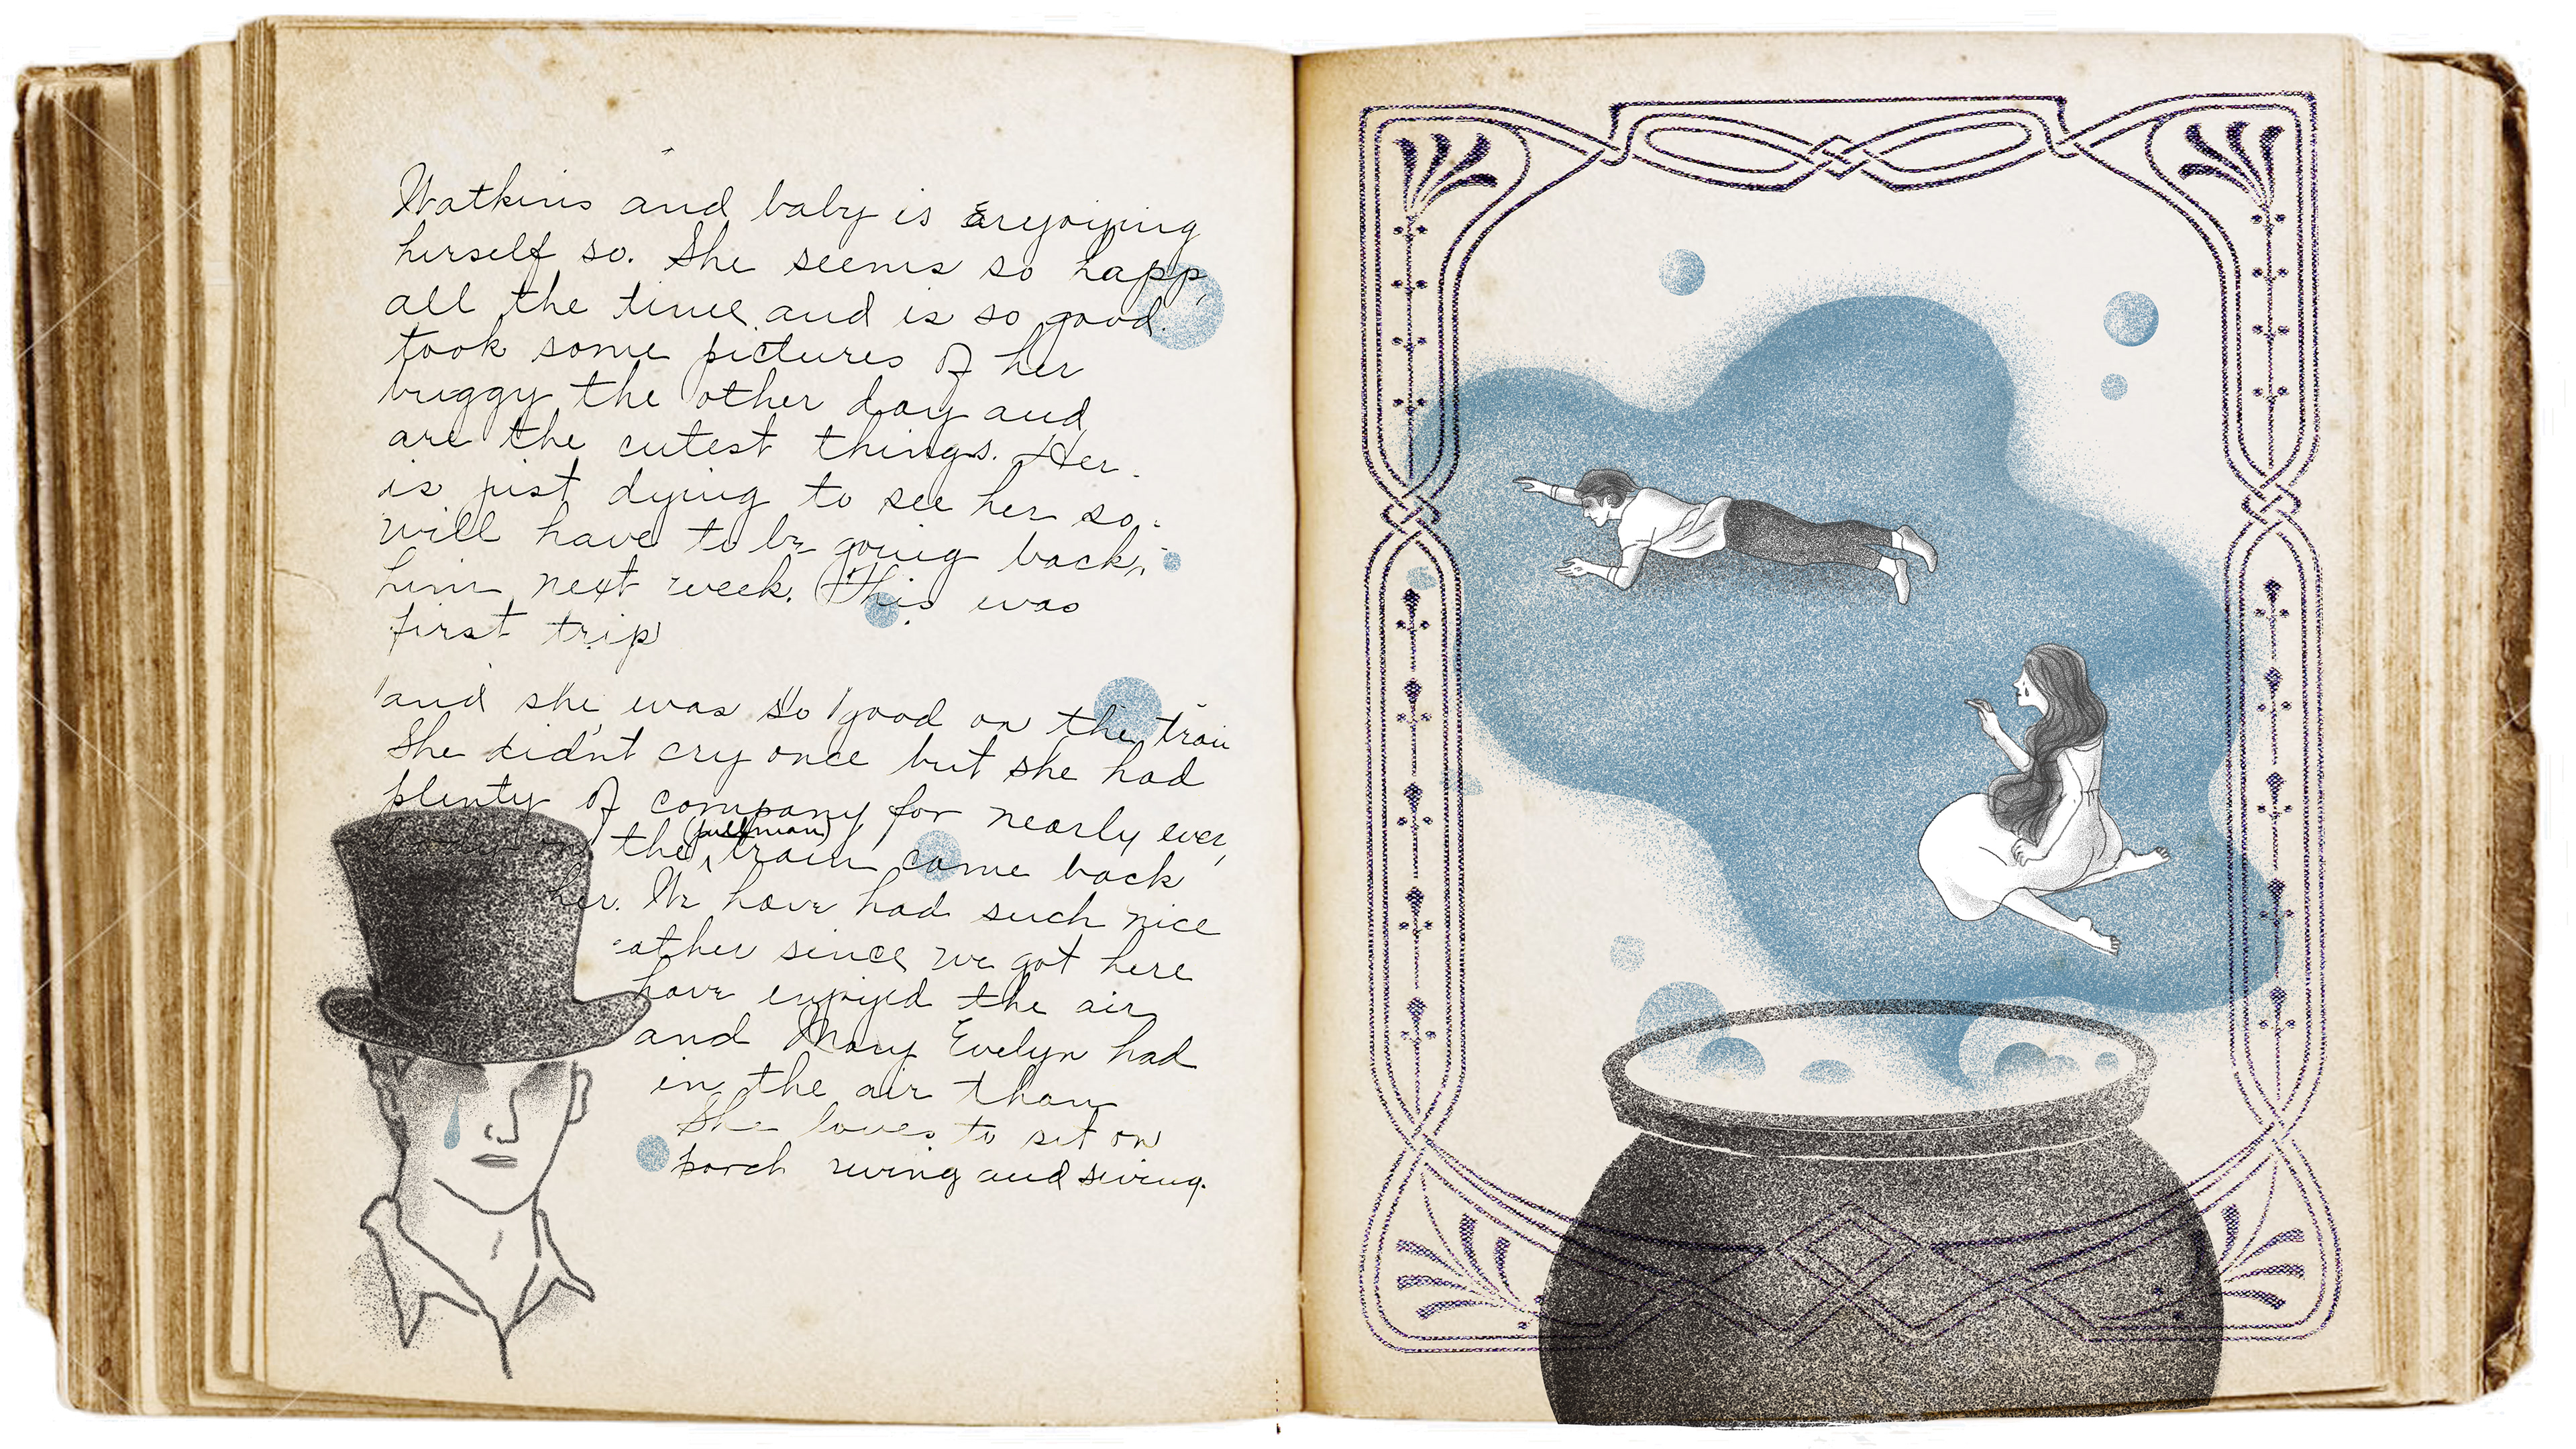 Watkins and baby is enjoying
herself so. She seems so happ
all the time and is so good.
took some pictures of her
buggy the other day and
are the cutest things. Her
is just dying to see her so
will have to be going back
him next week. This was
first trip
and she was so good on the train
She didn't cry once but she had
plenty of company for nearly ever
body on the (pullman) train came back
her. We have had such nice
eather since we got here
have enjoyed the air
and Mary Evelyn had
in the air than
She loves to sit on
porch swing and swing.